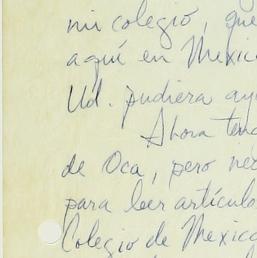 mi colegio, que
aquí en Mexic
Ud. pudiera ay
Ahora ten
de Oca, pero ne
para leer artículo
Colegio de Mexic